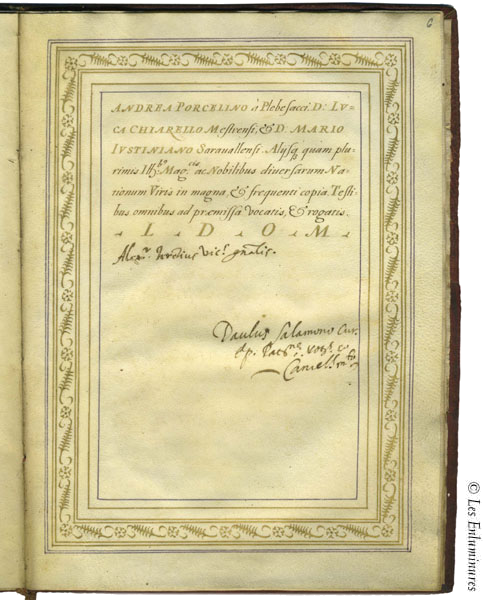 6
ANDREA PORCELINO à Plebesacci. D: LV=
CA CHIARELLO Mestrensi, & D: MARIO
IVSTINIANO Sarauallensi. Alijsq́ quam plu
rimis Ill.bus Mag.cis ac Nobilibus diuersarum Na
tionum Viris in magna, & frequenti copia. Testi
bus omnibus ad præmissa vocatis, & rogatis.
L D O M
vic.s gnalis.
Paulus Salamono
© Les Enluminures